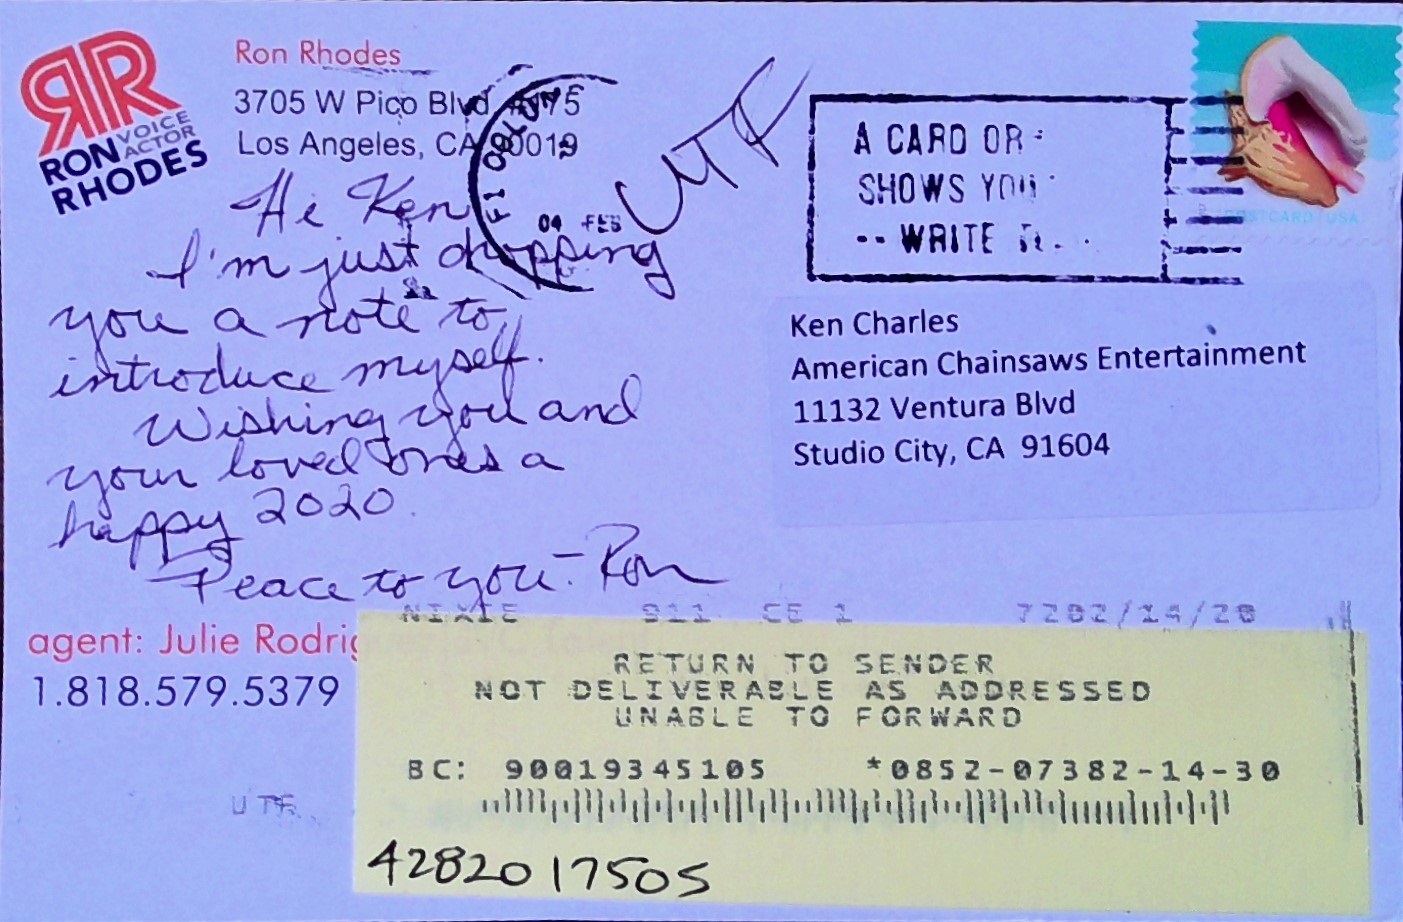 RR
RON VOICE
ACTOR
RHODES
Ron Rhodes
3705 W Pico Blvd
Los Angeles, CA 90019
04 FEB
UTF
A CARD OR
SHOWS YOU
-- WRITE
POSTCARD USA
Hi Ken
I'm just dropping
you a note to
introduce myself.
Wishing you and
your loved ones a
happy 2020.
Peace to you - Ron
Ken Charles
American Chainsaws Entertainment
11132 Ventura Blvd
Studio City, CA 91604
agent: Julie Rodrig
1.818.579.5379
NIXIE 911 CE 1 7202/14/20
RETURN TO SENDER
NOT DELIVERABLE AS ADDRESSED
UNABLE TO FORWARD
BC: 90019345105 *0852-07382-14-30
UTF
4282017505